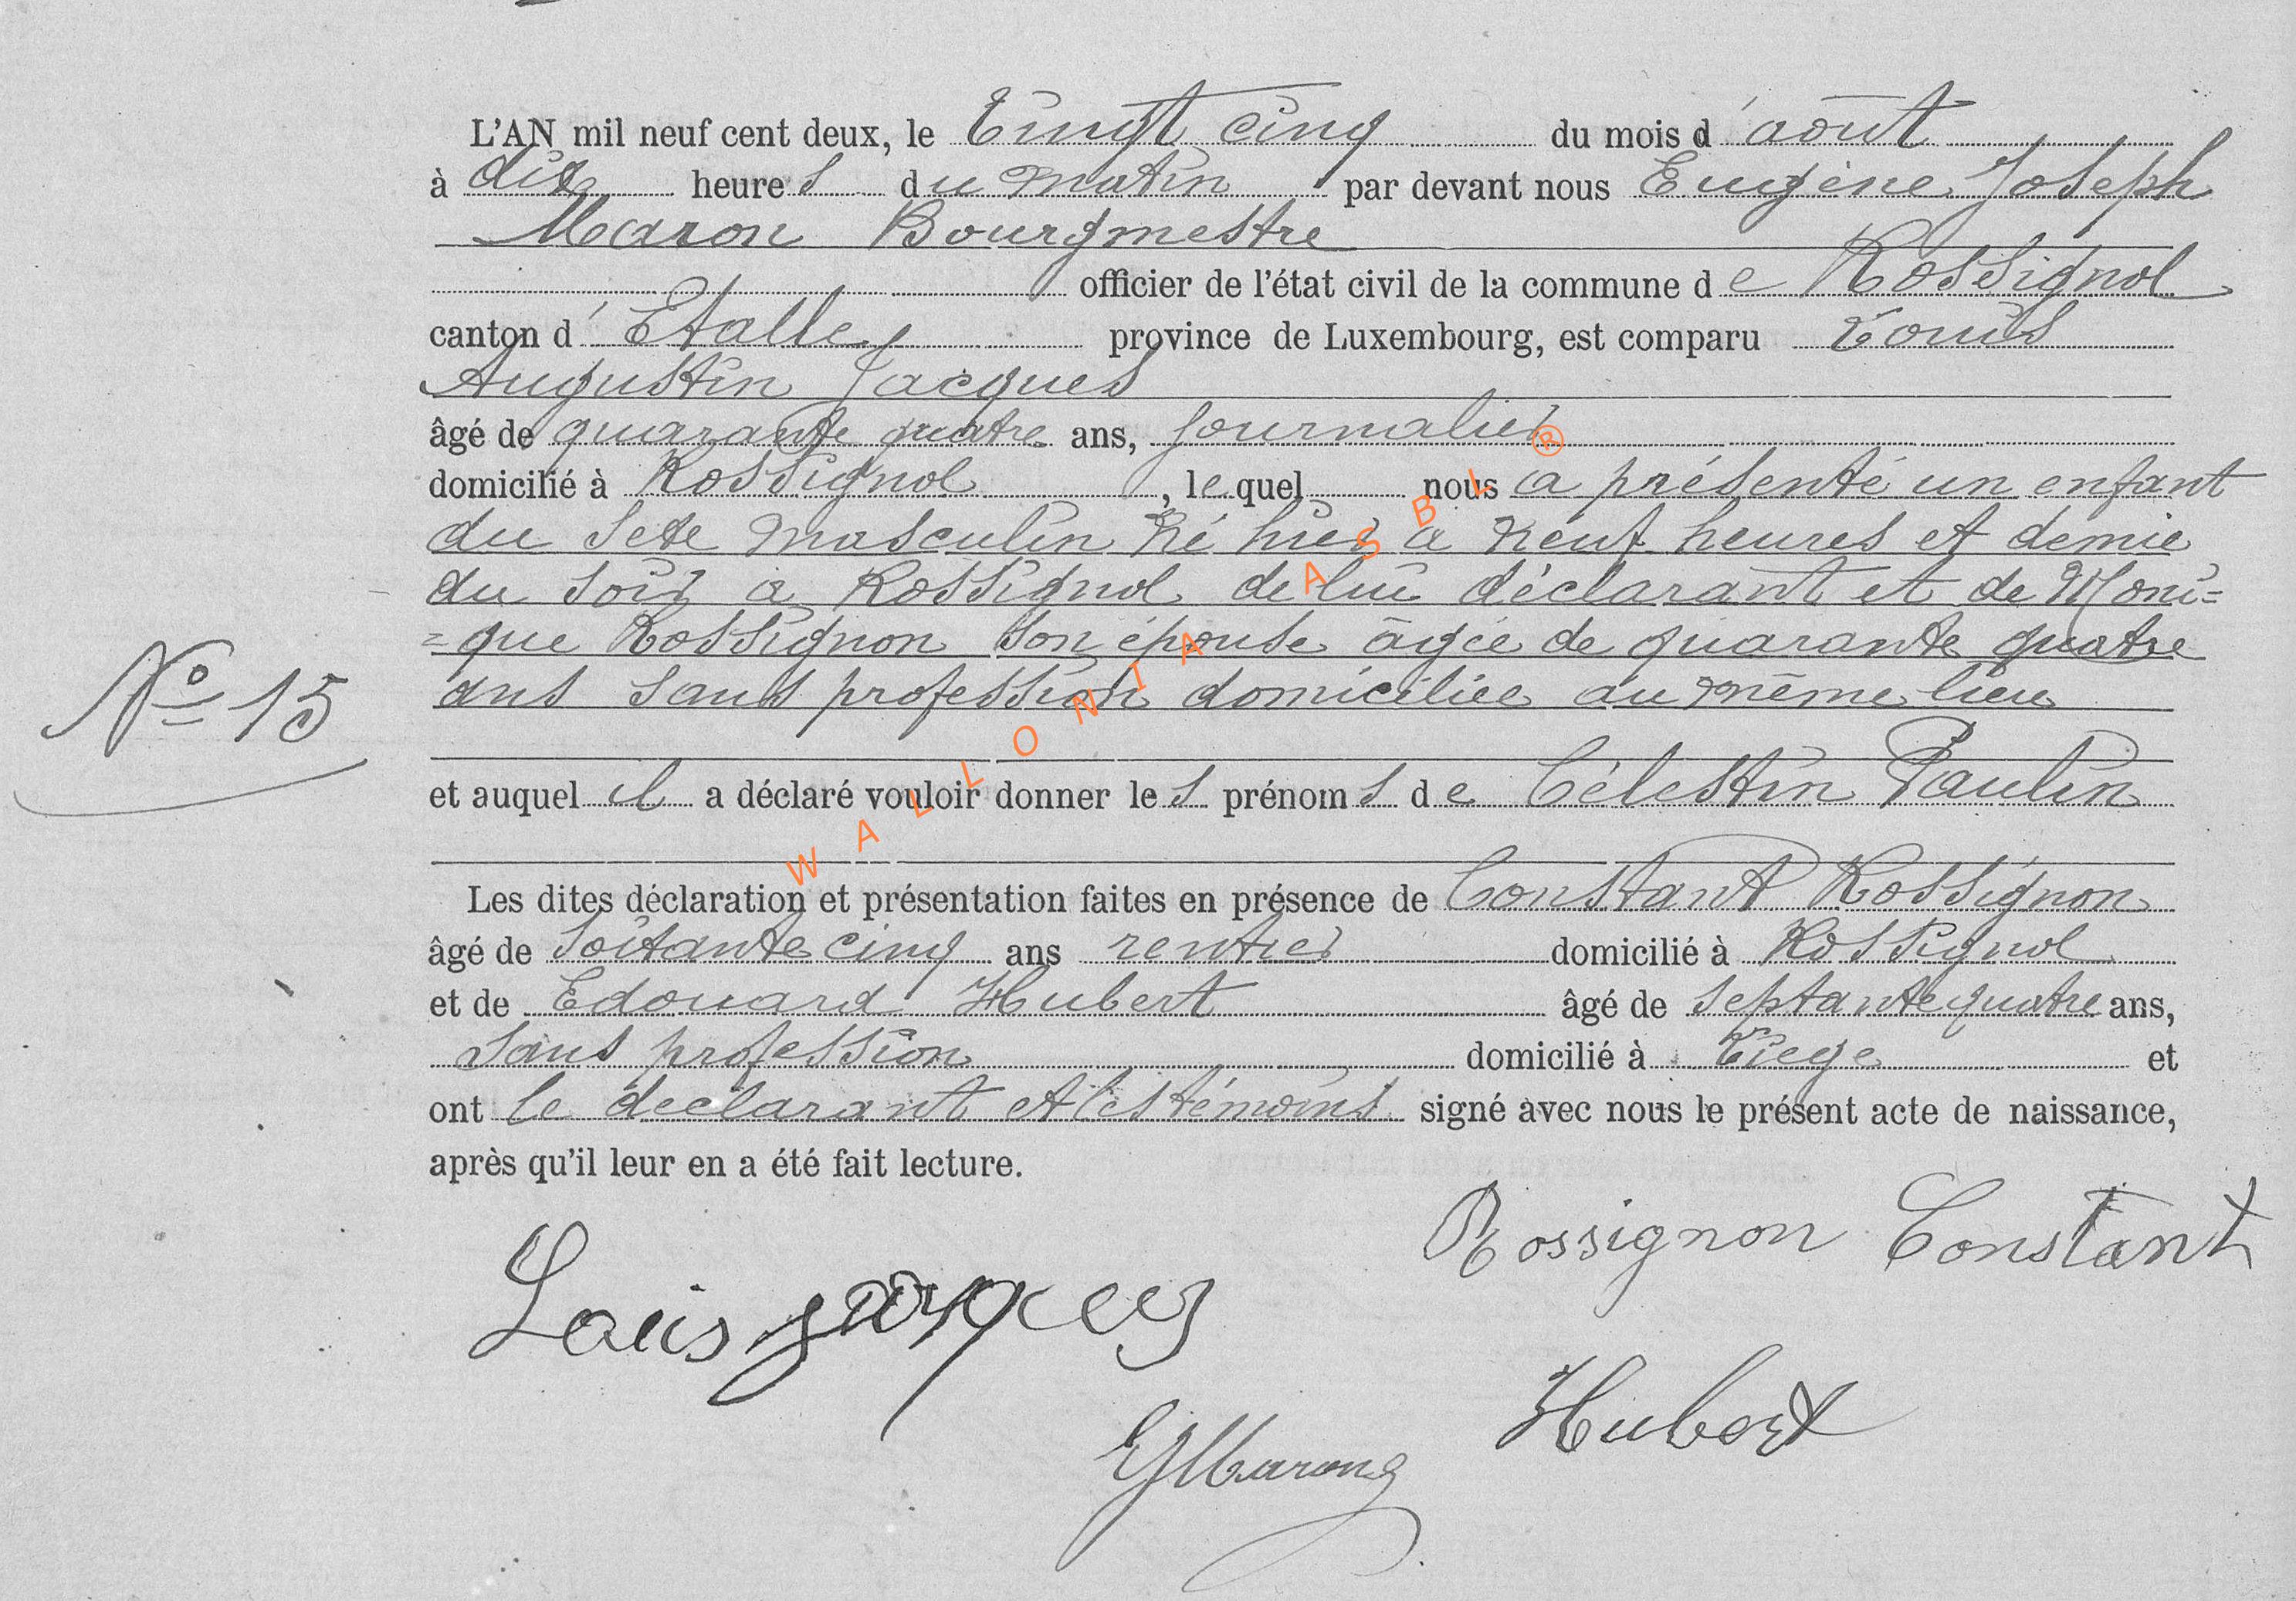 L'AN mil neuf cent deux, le Vingt cinq du mois d'août
à dix heures du matin par devant nous Eugène Joseph
Maron Bourgmestre
officier de l'état civil de la commune de Rossignol
canton d'Etalle province de Luxembourg, est comparu Louis
Augustin Jacques
âgé de quarante quatre ans, journalier
domicilié à Rossignol, lequel nous a présenté un enfant
du sexe masculin né hier à neuf heures et demie
du soir à Rossignol de lui déclarant et de Moni=
=que Rossignon son épouse âgée de quarante quatre
ans sans profession domiciliée au même lieu
N° 15
et auquel il a déclaré vouloir donner les prénoms de Célestin Paulin
Les dites déclaration et présentation faites en présence de Constant Rossignon
âgé de soixante cinq ans rentier domicilié à Rossignol
et de Edouard Hubert âgé de septante quatre ans,
sans profession domicilié à Liege et
ont le declarant et les témoins signé avec nous le présent acte de naissance,
après qu'il leur en a été fait lecture.
Rossignon Constant
Louis Jacques
Hubert
EJMaron
WALLONIA ASBL ®